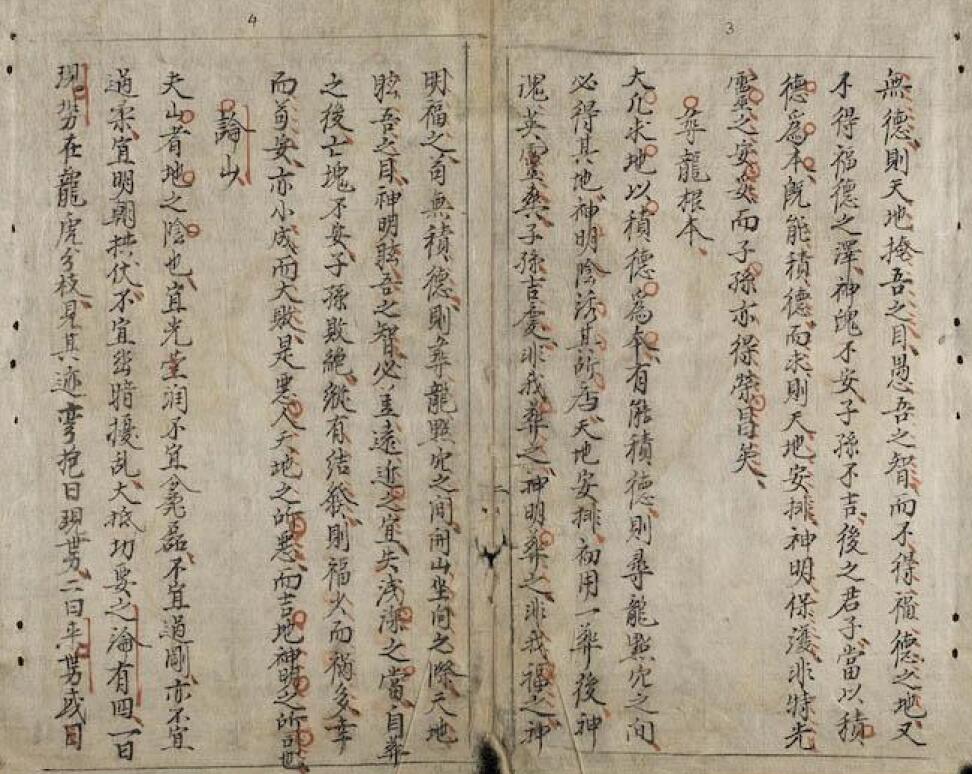 3
無德則天地掩吾之目愚吾之智而不得福德之地又
不得福德之澤神魄不安子孫不吉後之君子當以積
德為本既能積德而求則天地安排神明保護非特先
靈之安妥而子孫亦得榮昌矣
尋龍根本
大凡求地以積德為本有能積德則尋龍點穴之间
必得其地神明陰誘其所店天地安排初用一葬後神
魂英靈與子孫吉慶非我葬之神明葬之非我福之神
4
明福之苟無積德則尋龍點穴之间開山坐向之際天地
眩吾之目神明眩吾之智必差遠近之宜失浅深之當自葬
之後亡塊不安子孫敗絶縱有结發則福少而禍多幸
而苟安亦小成而大敗是惡人天地之所惡而吉地神明之所司也
論山
夫山者地之陰也宜光莹润不宜磊不宜過剛亦不宜
過柔宜明朗拱伏不宜幽暗擾乱大抵切要之論有四一曰
現势在龍虎分枝見其迹彎抱曰現势二曰平势或曰